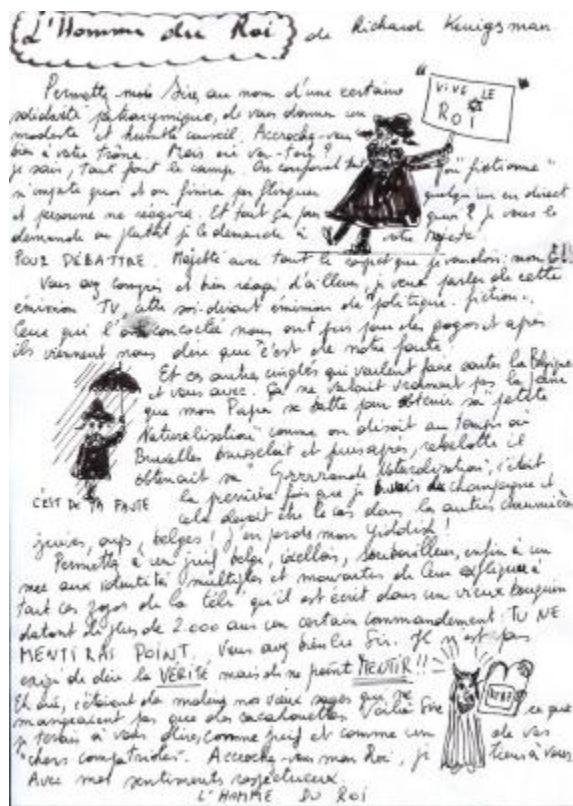 L'Homme du Roi de Richard Kenigsman
Permettez moi Sire, au nom d'une certaine
solidarité patronymique, de vous donner un
modeste et humble conseil. Accrochez-vous
bien à votre trône. Mais où va-t-on ?
"VIVE LE ROI"
je sais, tout fout le camp. On
"fictionne"
n'importe quoi et on finira par flinguer quelqu'un en direct
et personne ne réagira. Et tout ça pour quoi ? je vous le
demande ou plutôt je le demande à votre Majesté
POUR DÉBATTRE. Majesté avec tout le respect que je vous dois : mon
Vous avez compris et bien réagi d'ailleurs, je veux parler de cette
émission TV, cette soi-disant émission de "politique-fiction".
Ceux qui l'ont concoctée nous ont pris pour des gogos et après
ils viennent nous dire que c'est de notre faute.
Et ces autres cinglés qui veulent faire sauter la Belgique
et vous avec. Ça ne valait vraiment pas la peine
que mon Papa se batte pour obtenir sa "petite
Naturalisation" comme on disait au temps où
Bruxelles brusselait et puis après, rebelotte il
obtenait sa "Grrrrande Naturalisation", c'était
C'EST DE TA FAUTE
la première fois que je buvais du champagne et
cela devait être le cas dans les autres chaumières
juives, oups, belges ! J'en perds mon Yiddish !
Permettez à un juif belge, ixellois,
enfin à un
mec aux identités multiples et mouvantes de
expliquer à
tout ces zozos de la télé qu'il est écrit dans un vieux bouquin
datant de plus de 2.000 ans un certain commandement : TU NE
MENTIRAS POINT. Vous avez bien lu Sir. Il n'est pas
exigé de dire la VÉRITÉ mais de ne point MENTIR !!
Eh oui, c'étaient des malins nos vieux sages qui ne
mangeaient pas que des cacahouettes. Voilà Sire ce que
RTBF
je tenais à vous dire, comme juif et comme un de vos
"chers compatriotes". Accrochez-vous mon Roi, je tiens à vous
Avec mes sentiments respectueux.
L'HOMME DU ROI